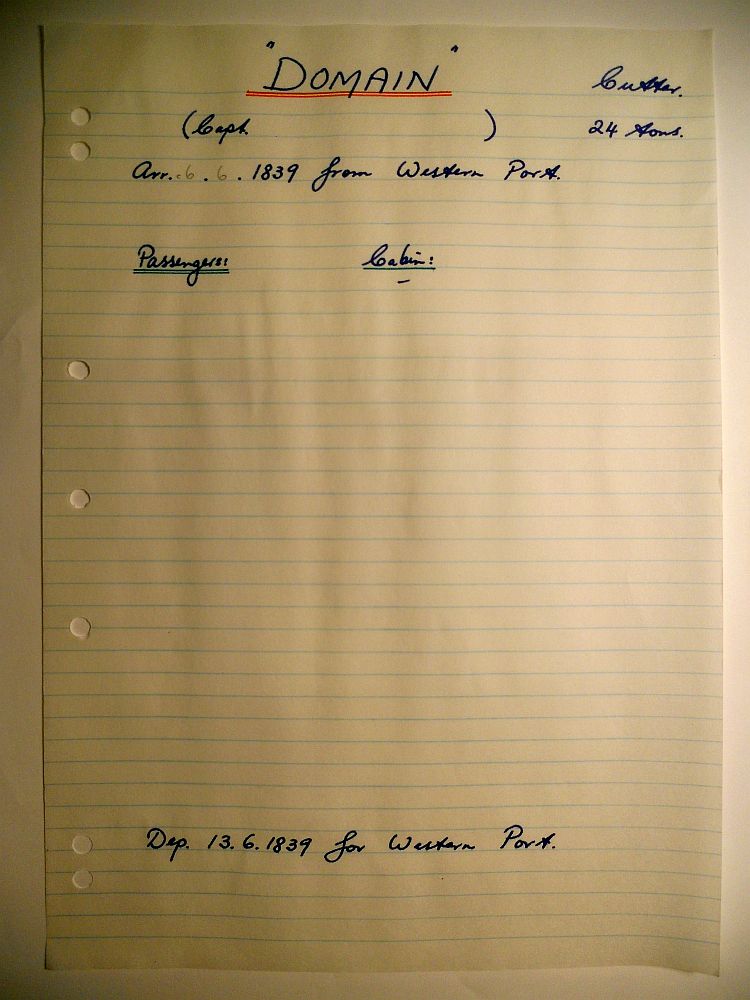 "DOMAIN"
Cutter.
(Capt. )
24 tons.
Arr. 6.6.1839 from Western Port.
Passengers: Cabin:
–
Dep. 13.6.1839 for Western Port.